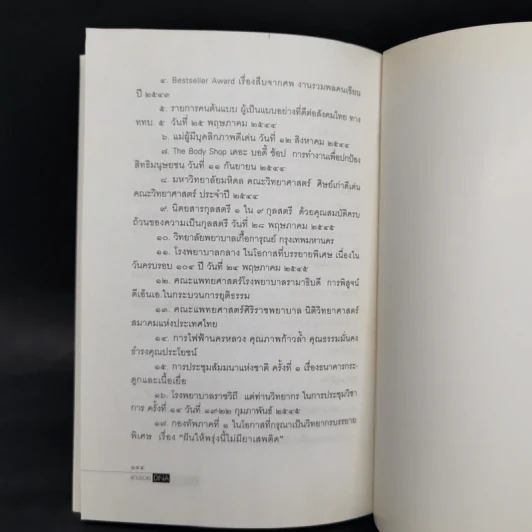 ๔. Bestseller Award เรื่องสืบจากศพ งานรวมพลคนเขียน
ปี ๒๕๔๓
๕. รายการคนต้นแบบ ผู้เป็นแบบอย่างที่ดีต่อสังคมไทย ทาง
ททบ. ๕ วันที่ ๒๕ พฤษภาคม ๒๕๔๔
๖. แม่ผู้มีบุคลิกภาพดีเด่น วันที่ ๑๒ สิงหาคม ๒๕๔๔
๗. The Body Shop เดอะ บอดี้ ช้อป การทำงานเพื่อปกป้อง
สิทธิมนุษยชน วันที่ ๑๑ กันยายน ๒๕๔๔
๘. มหาวิทยาลัยมหิดล คณะวิทยาศาสตร์ ศิษย์เก่าดีเด่น
คณะวิทยาศาสตร์ ประจำปี ๒๕๔๔
๙. นิตยสารกุลสตรี ๑ ใน ๙ กุลสตรี ด้วยคุณสมบัติครบ
ถ้วนของความเป็นกุลสตรี วันที่ ๒๘ พฤษภาคม ๒๕๔๕
๑๐. วิทยาลัยพยาบาลเกื้อการุณย์ กรุงเทพมหานคร
๑๑. โรงพยาบาลกลาง ในโอกาสที่บรรยายพิเศษ เนื่องใน
วันครบรอบ ๑๐๔ ปี วันที่ ๒๔ พฤษภาคม ๒๕๔๕
๑๒. คณะแพทยศาสตร์โรงพยาบาลรามาธิบดี การพิสูจน์
ดีเอ็นเอ.ในกระบวนการยุติธรรม
๑๓. คณะแพทยศาสตร์ศิริราชพยาบาล นิติวิทยาศาสตร์
สมาคมแห่งประเทศไทย
๑๔. การไฟฟ้านครหลวง คุณภาพก้าวล้ำ คุณธรรมมั่นคง
ธำรงคุณประโยชน์
๑๕. การประชุมสัมมนาแห่งชาติ ครั้งที่ ๑ เรื่องธนาคารกระ-
ดูกและเนื้อเยื่อ
๑๖. โรงพยาบาลราชวิถี แด่ท่านวิทยากร ในการประชุมวิชา
การ ครั้งที่ ๑๔ วันที่ ๑๙-๒๒ กุมภาพันธ์ ๒๕๔๕
๑๗. กองทัพภาคที่ ๑ ในโอกาสที่กรุณาเป็นวิทยากรบรรยาย
พิเศษ เรื่อง "ฝันให้พรุ่งนี้ไม่มียาเสพติด"
DNA